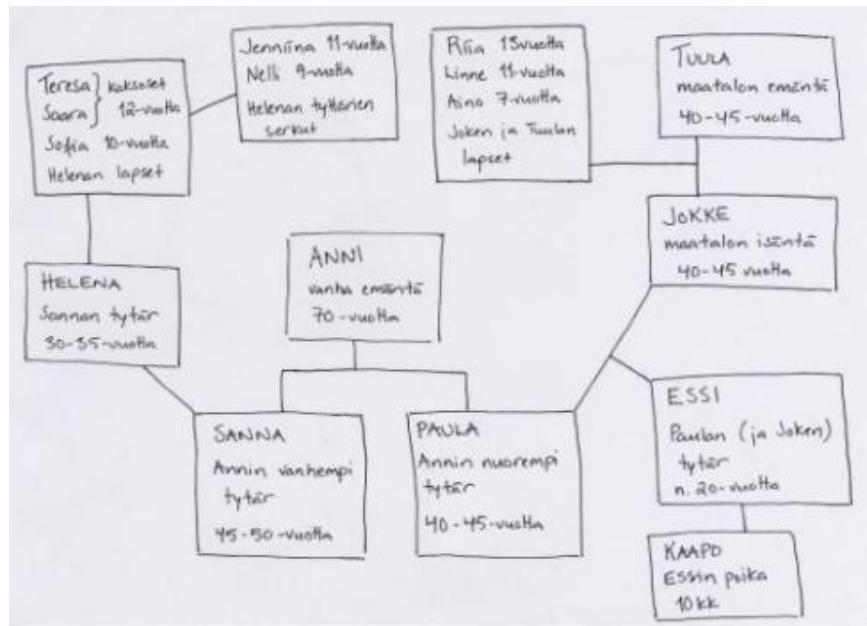 Teresa } kaksoset
Saara } 12-vuotta
Sofia 10-vuotta
Helenan lapset
Jenniina 11-vuotta
Nelli 9-vuotta
Helenan tyttärien
serkut
Riia 13vuotta
Linne 11-vuotta
Aino 7-vuotta
Joken ja Tuulan
lapset
TUULA
maatalon emäntä
40-45-vuotta
JOKKE
maatalon isäntä
40-45 vuotta
HELENA
Sannan tytär
30-35-vuotta
ANNI
vanha emäntä
70-vuotta
SANNA
Annin vanhempi
tytär
45-50-vuotta
PAULA
Annin nuorempi
tytär
40-45-vuotta
ESSI
Paulan (ja Joken)
tytär
n. 20-vuotta
KAAPO
Essin poika
10kk